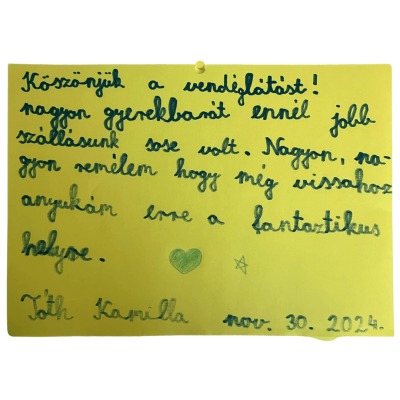 Köszönjük a vendéglátást!
nagyon gyerekbarát ennél jobb
szállásunk sose volt. Nagyon, na-
gyon remélem hogy még visszahoz
anyukám erre a fantasztikus
helyre.
Tóth Kamilla nov. 30. 2024.